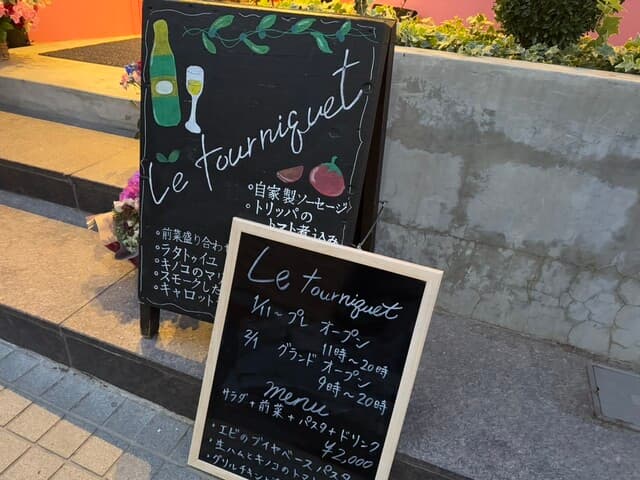 Le tourniquet
•自家製ソーセージ
•トリッパの
トマト煮込み
•前菜盛り合わ
•ラタトゥイユ
•キノコのマリ
•スモークした
•キャロット
Le tourniquet
1/11〜プレ オープン
11時〜20時
2/1 グランド オープン
9時〜20時
menu
サラダ+前菜+パスタ+ドリンク
¥2,000
•エビのブイヤベースパスタ
•生ハムとキノコのトマ
•グリルチキン